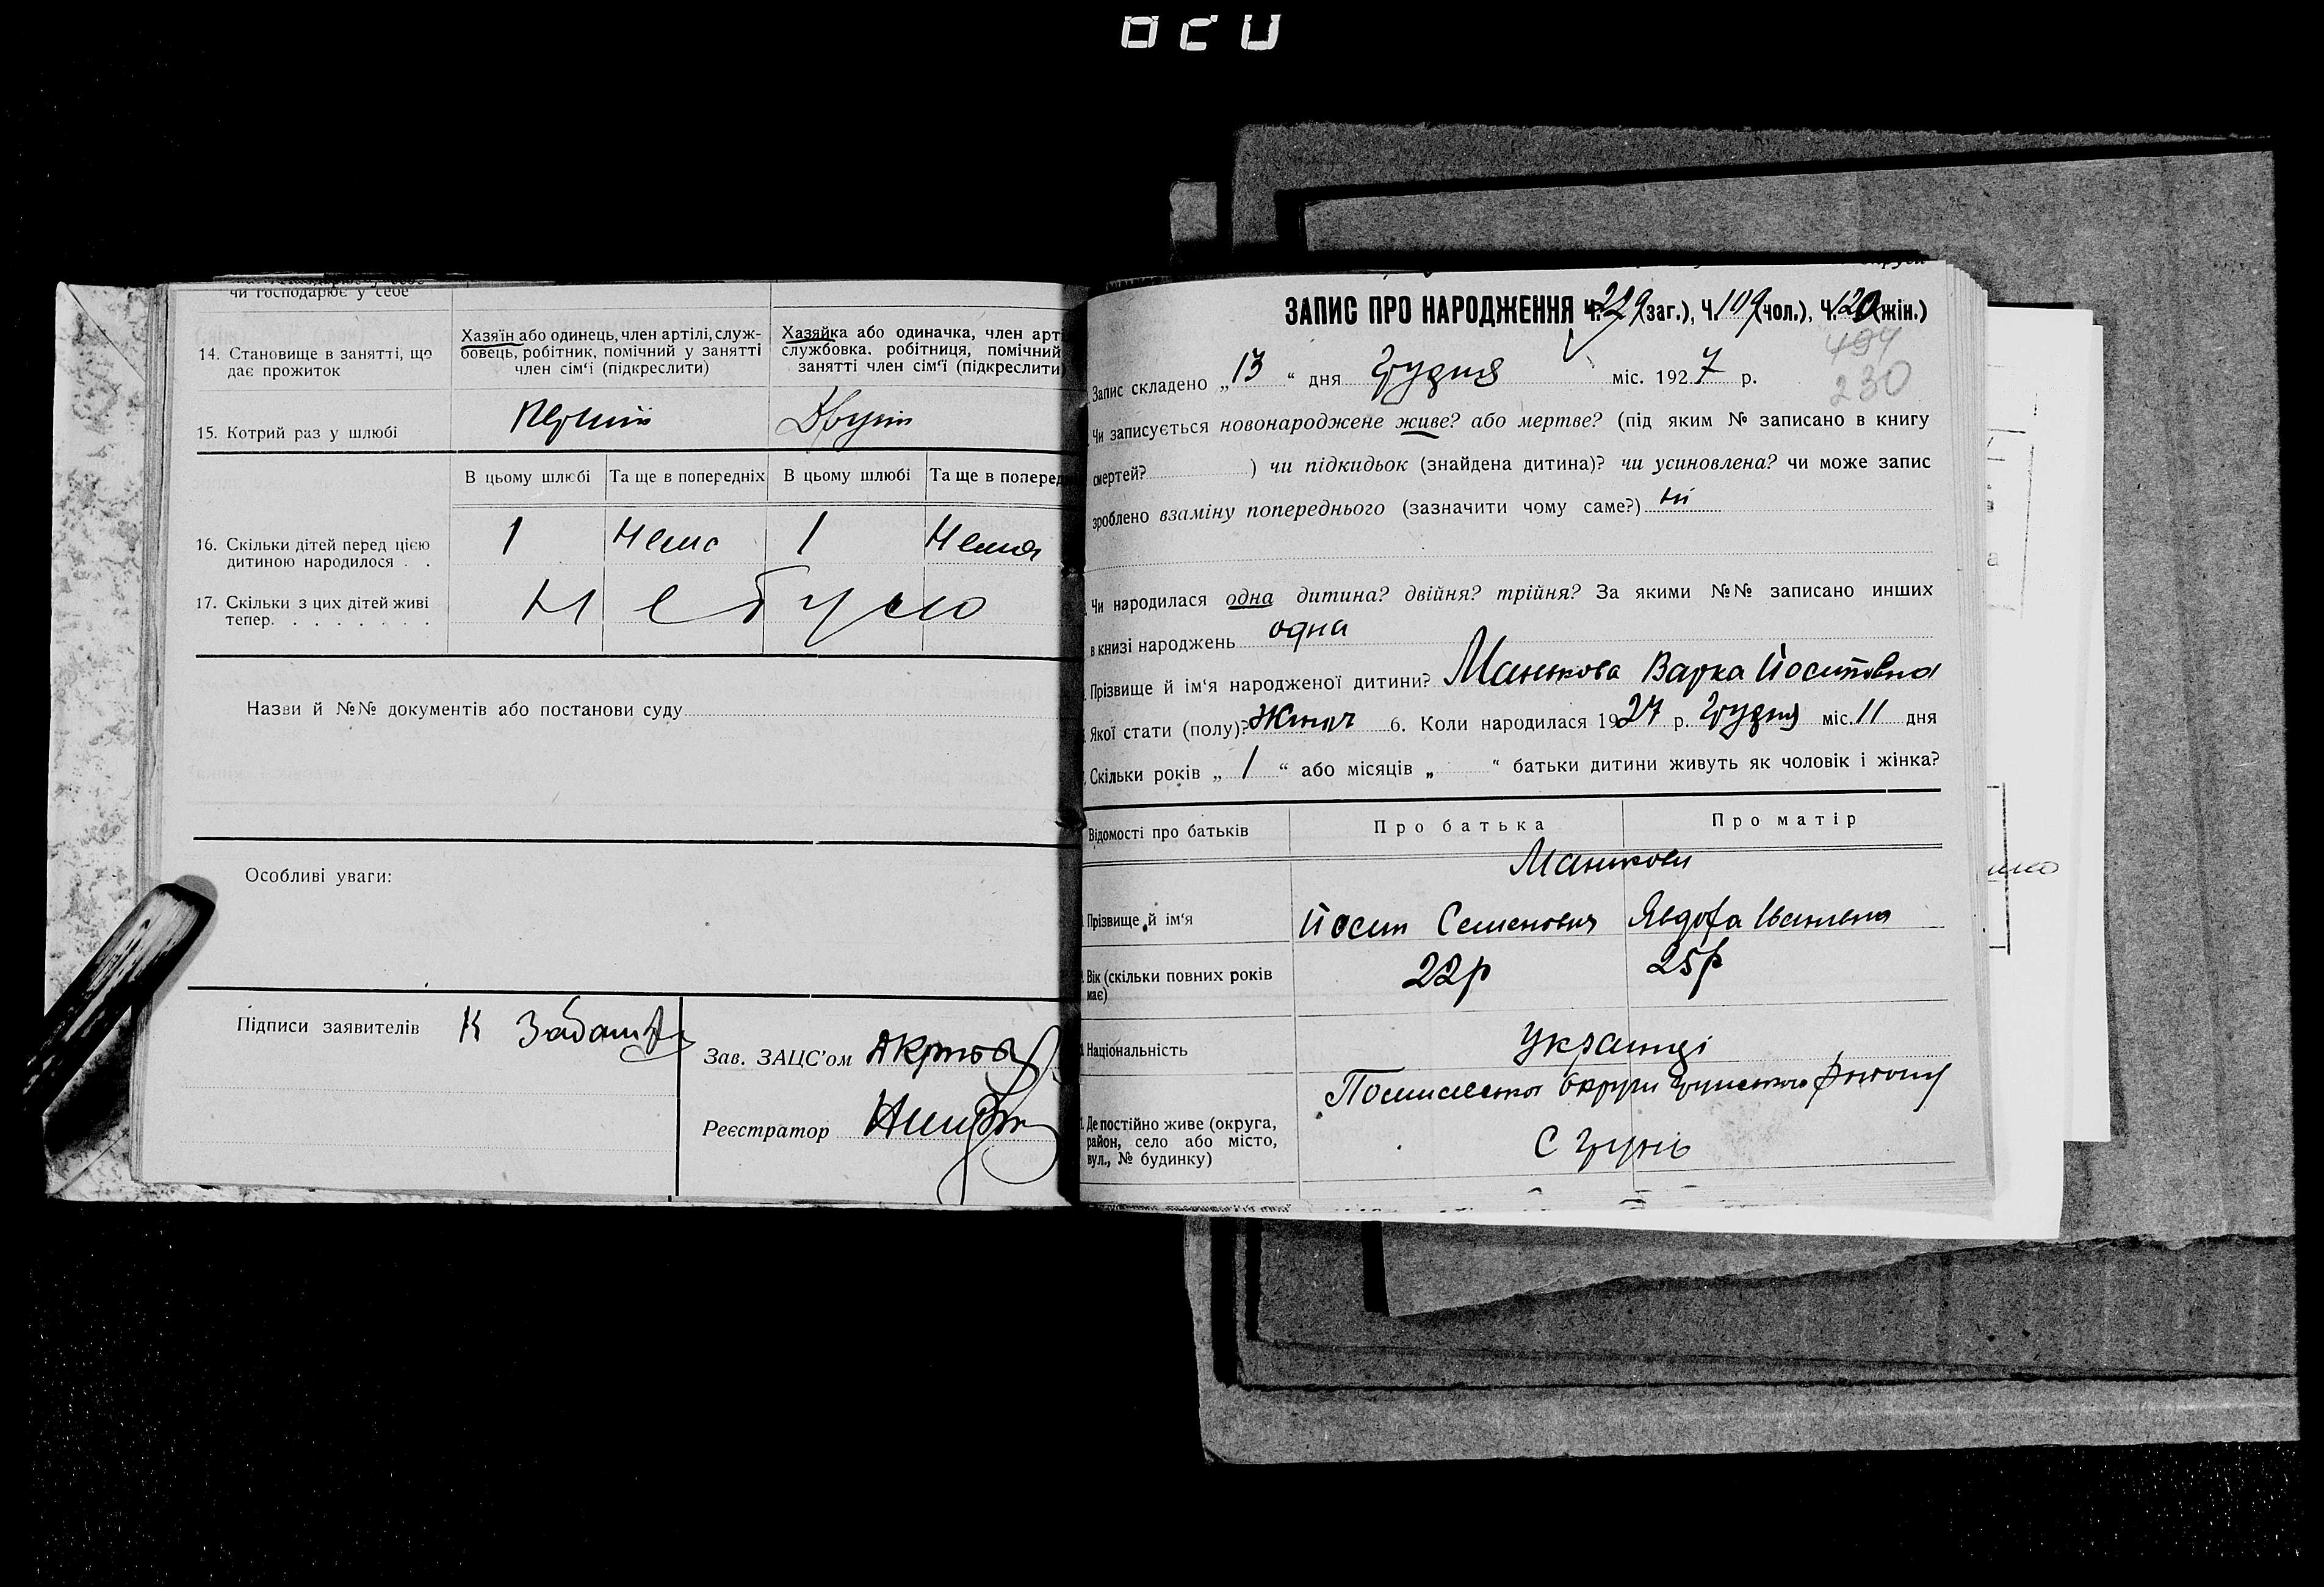 чи господарює у себе
14. Становище в занятті, що дає прожиток
Хазяїн або одинець, член артілі, служ-
бовець, робітник, помічний у занятті
член сім'ї (підкреслити)
Хазяйка або одиначка, член арт
службовка, робітниця, помічний
занятті член сім'ї (підкреслити)
15. Котрий раз у шлюбі
Перший
Другий
В цьому шлюбі Та ще в попередніх В цьому шлюбі Та ще в поперед
16. Скільки дітей перед цією
дитиною народилося . .
1 Нема 1 Нема
17. Скільки з цих дітей живі
тепер. . . . . . . .
Назви й №№ документів або постанови суду
Особливі уваги:
Підписи заявителів К
Зав. ЗАЦС'ом
Реєстратор
ЗАПИС ПРО НАРОДЖЕННЯ Ч. 229 (заг.), Ч. 109 (чол.), Ч. 120 (жін.)
494
230
Запис складено „13“ дня Грудня міс. 1927 р.
Чи записується новонароджене живе? або мертве? (під яким № записано в книгу
смертей? ) чи підкидьок (знайдена дитина)? чи усиновлена? чи може запис
зроблено взаміну попереднього (зазначити чому саме?) ні
Чи народилася одна дитина? двійня? трійня? За якими №№ записано инших
в книзі народжень одна
Прізвище й ім'я народженої дитини? Манькова Варка Йосиповна
Якої стати (полу)? Жіноч 6. Коли народилася 1927 р. Грудня міс. 11 дня
Скільки років „1“ або місяців „ “ батьки дитини живуть як чоловік і жінка?
Відомості про батьків Про батька Про матір
Манькови
Прізвище й ім'я Йосип Семенович Явдоха Іванівна
Вік (скільки повних років
має)
22р 25р
Національність Українці
Де постійно живе (округа,
район, село або місто,
вул., № будинку)
округи Грунського району
С Грунь